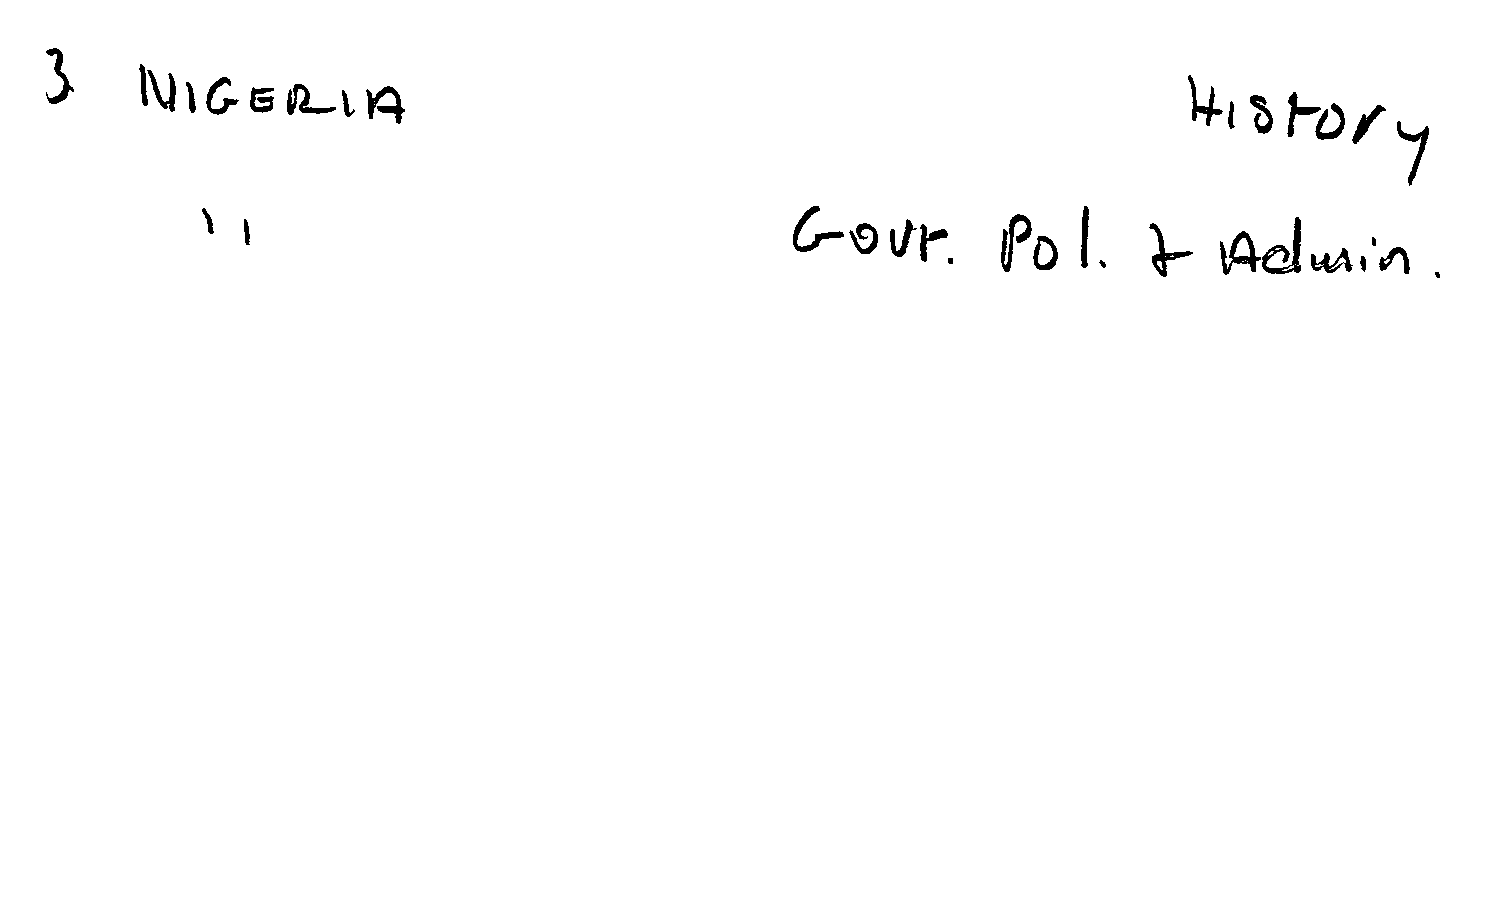 3 NIGERIA History
" Govt. Pol. & Admin.